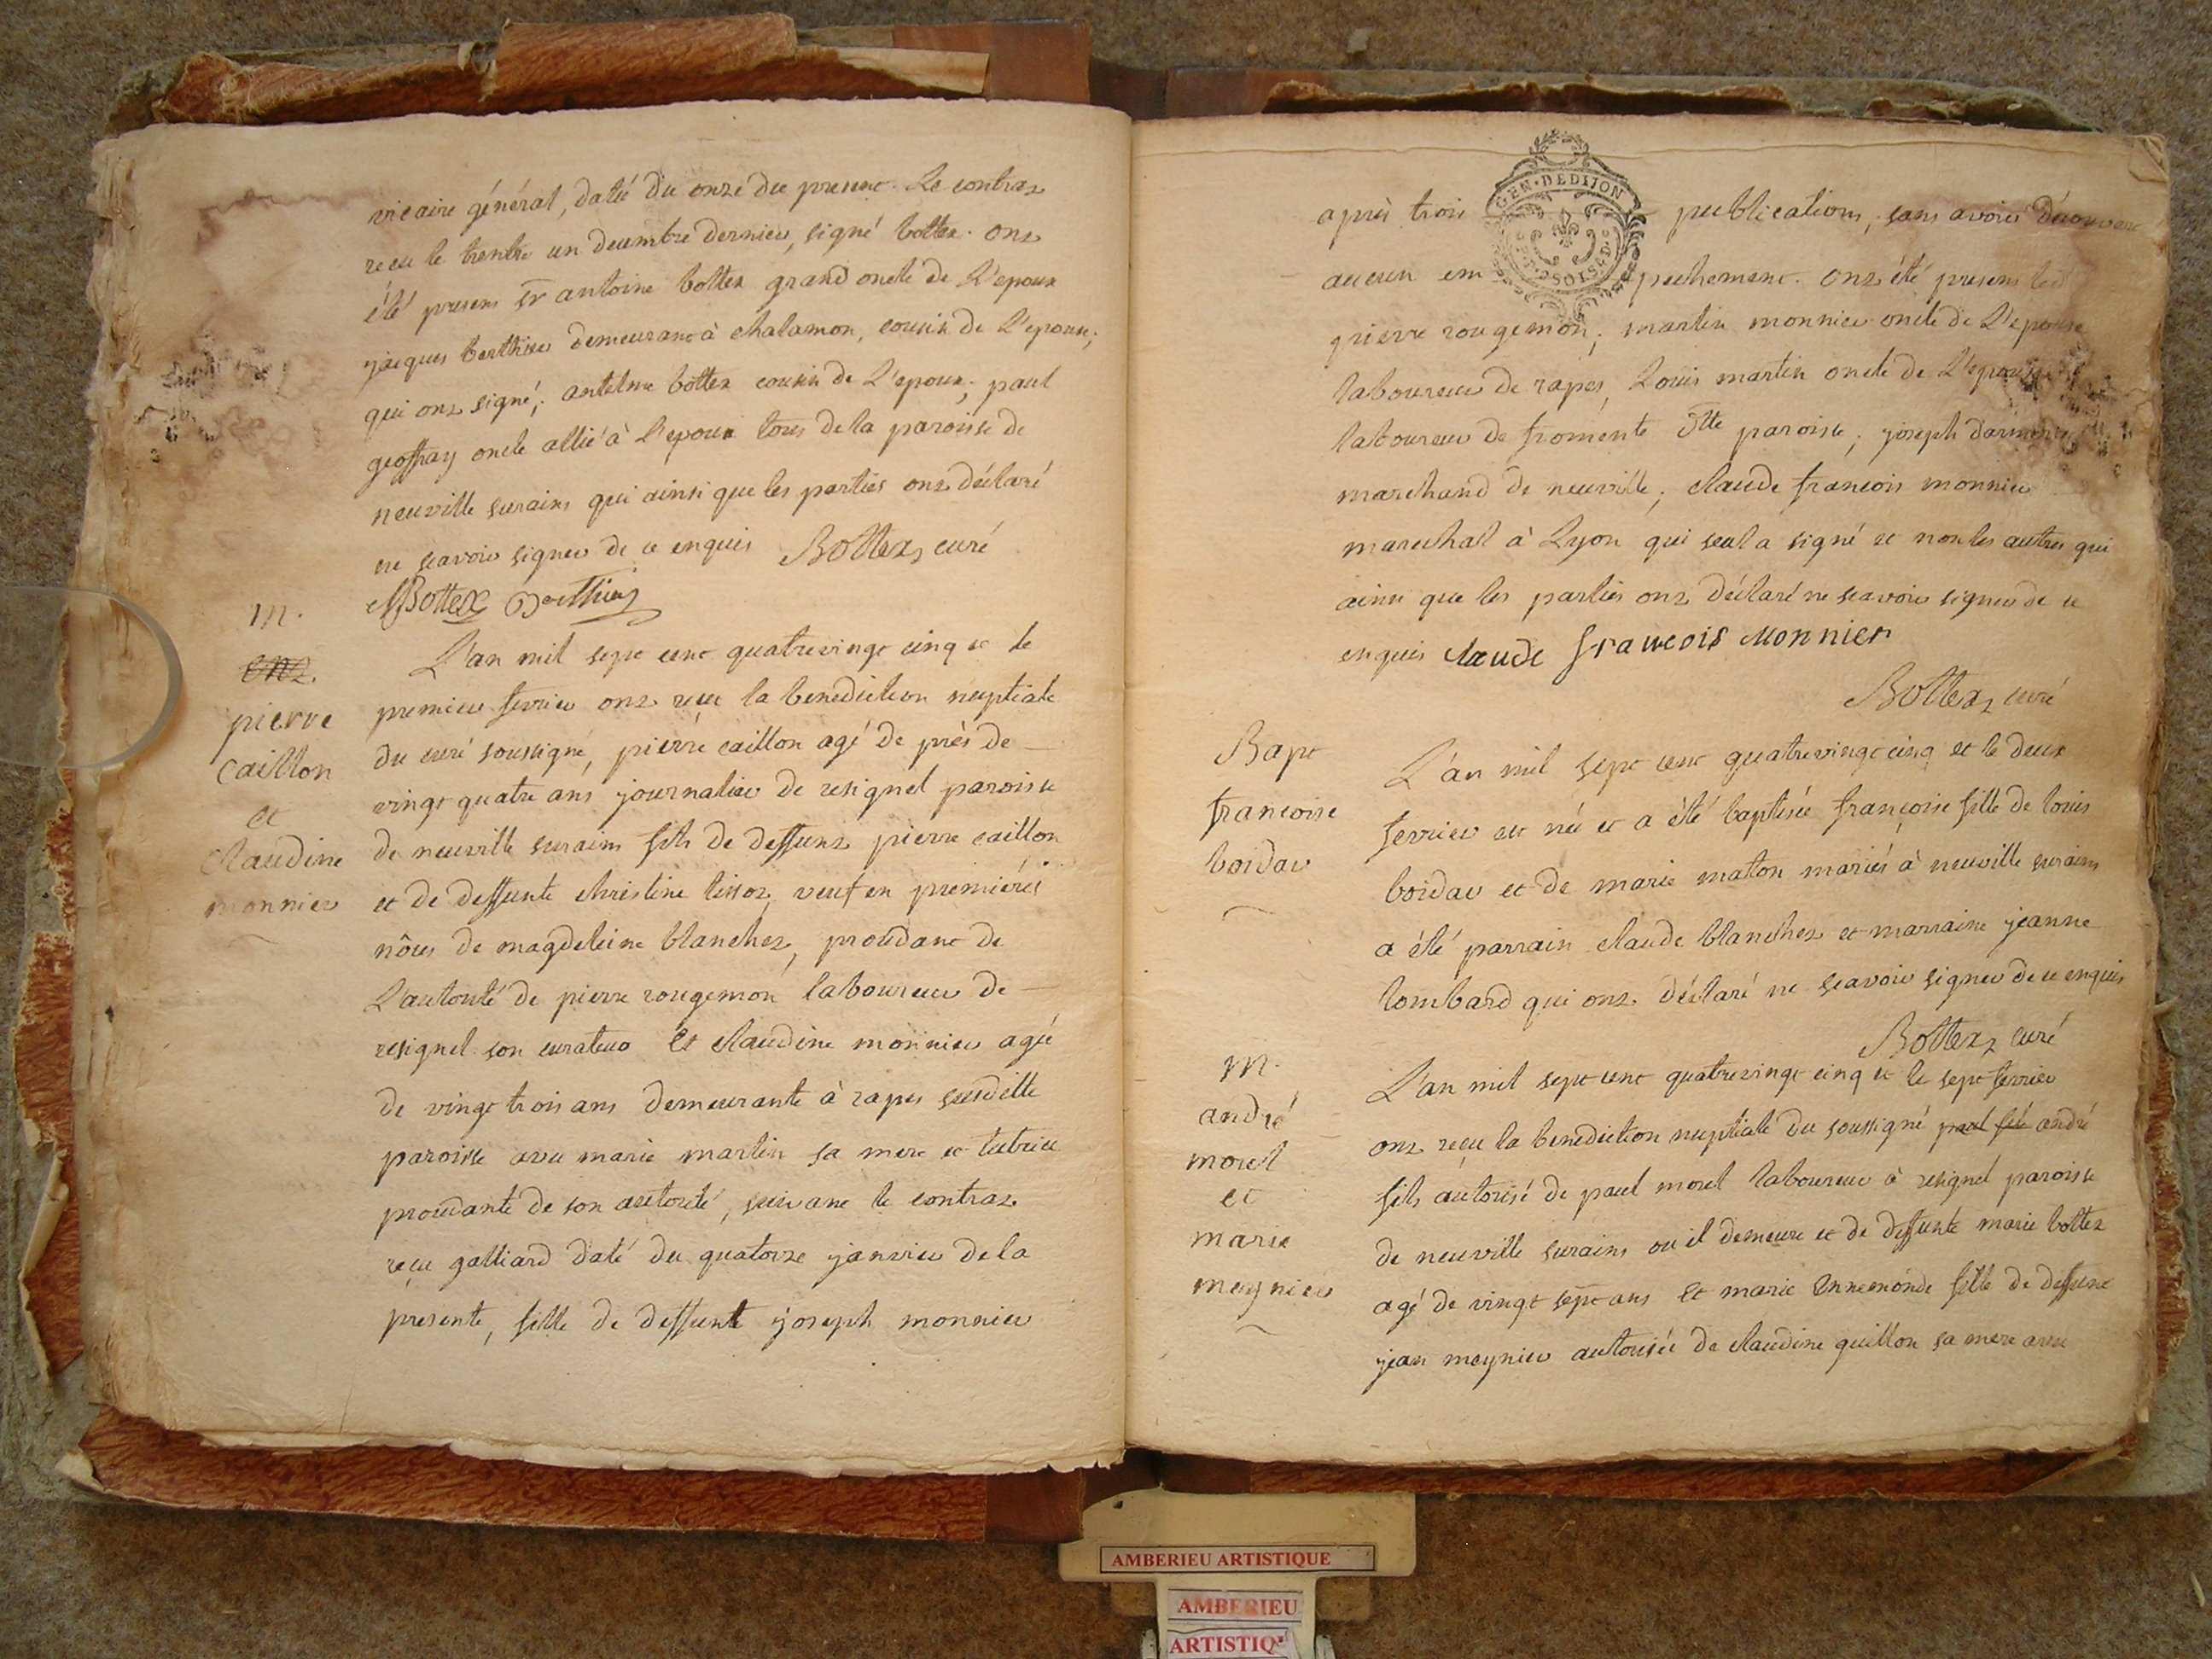 vicaire général, daté du onze du present. Le contrat
reçu le trente un decembre dernier, signé bottex. ont
été presens sr antoine bottex grand oncle de L'epoux
jacques berthier demeurant à chalamon, cousin de L'epoux;
qui ont signé; antelme bottex cousin de L'epoux; paul
geoffray oncle allié à L'epoux tous de la paroisse de
neuville surains qui ainsi que les parties ont déclaré
ne scavoir signer de ce enquis Bottex, curé
Bottex Berthier
m.
ent.
pierre
caillon
et
claudine
monnier
L'an mil sept cent quatrevingt cinq et le
premier fevrier ont reçu la benediction nuptiale
du curé soussigné, pierre caillon agé de près de
vingt quatre ans journalier de resignel paroisse
de neuville surains fils de deffunt pierre caillon
et de deffunte christine tissot, veuf en premières
nôces de magdeleine blanchet, procédant de
L'autorité de pierre rougemon laboureur de
resignel son curateur Et claudine monnier agée
de vingt trois ans demeurante à rapes susditte
paroisse avec marie martin sa mere et tutrice
procedante de son autorité, suivant le contrat
reçu galliard daté du quatorze janvier de la
presente, fille de deffunt joseph monnier
GEN·DEDIJON
après trois publications, sans avoir découvert
aucun empechement. ont été presens led
pierre rougemon; martin monnier oncle de L'epouse
laboureur de rapes, Louis martin oncle de L'epouse
laboureur de fromente dtte paroisse; joseph
marchand de neuville; claude francois monnier
marechal à Lyon qui seul a signé et non les autres qui
ainsi que les parties ont déclaré ne scavoir signer de ce
enquis claude francois monnier
Bottex, curé
Bapt
francoise
boidar
L'an mil sept cent quatrevingt cinq et le deux
fevrier est née et a été baptisée françoise fille de louis
boidar et de marie maton mariés à neuville surains
a été parrain claude blanchet et marraine jeanne
lombard qui ont déclaré ne scavoir signer de ce enquis
Bottex, curé
m.
andré
morel
et
marie
meynier
L'an mil sept cent quatrevingt cinq et le sept fevrier
ont reçu la benediction nuptiale du soussigné paul fils andré
fils autorisé de paul morel laboureur à resignel paroisse
de neuville surains ou il demeure et de deffunte marie bottex
agé de vingt sept ans Et marie Ennemonde fille de deffunt
jean meynier autorisée de claudine guillon sa mere avec
AMBERIEU ARTISTIQUE
AMBERIEU
ARTISTIQ